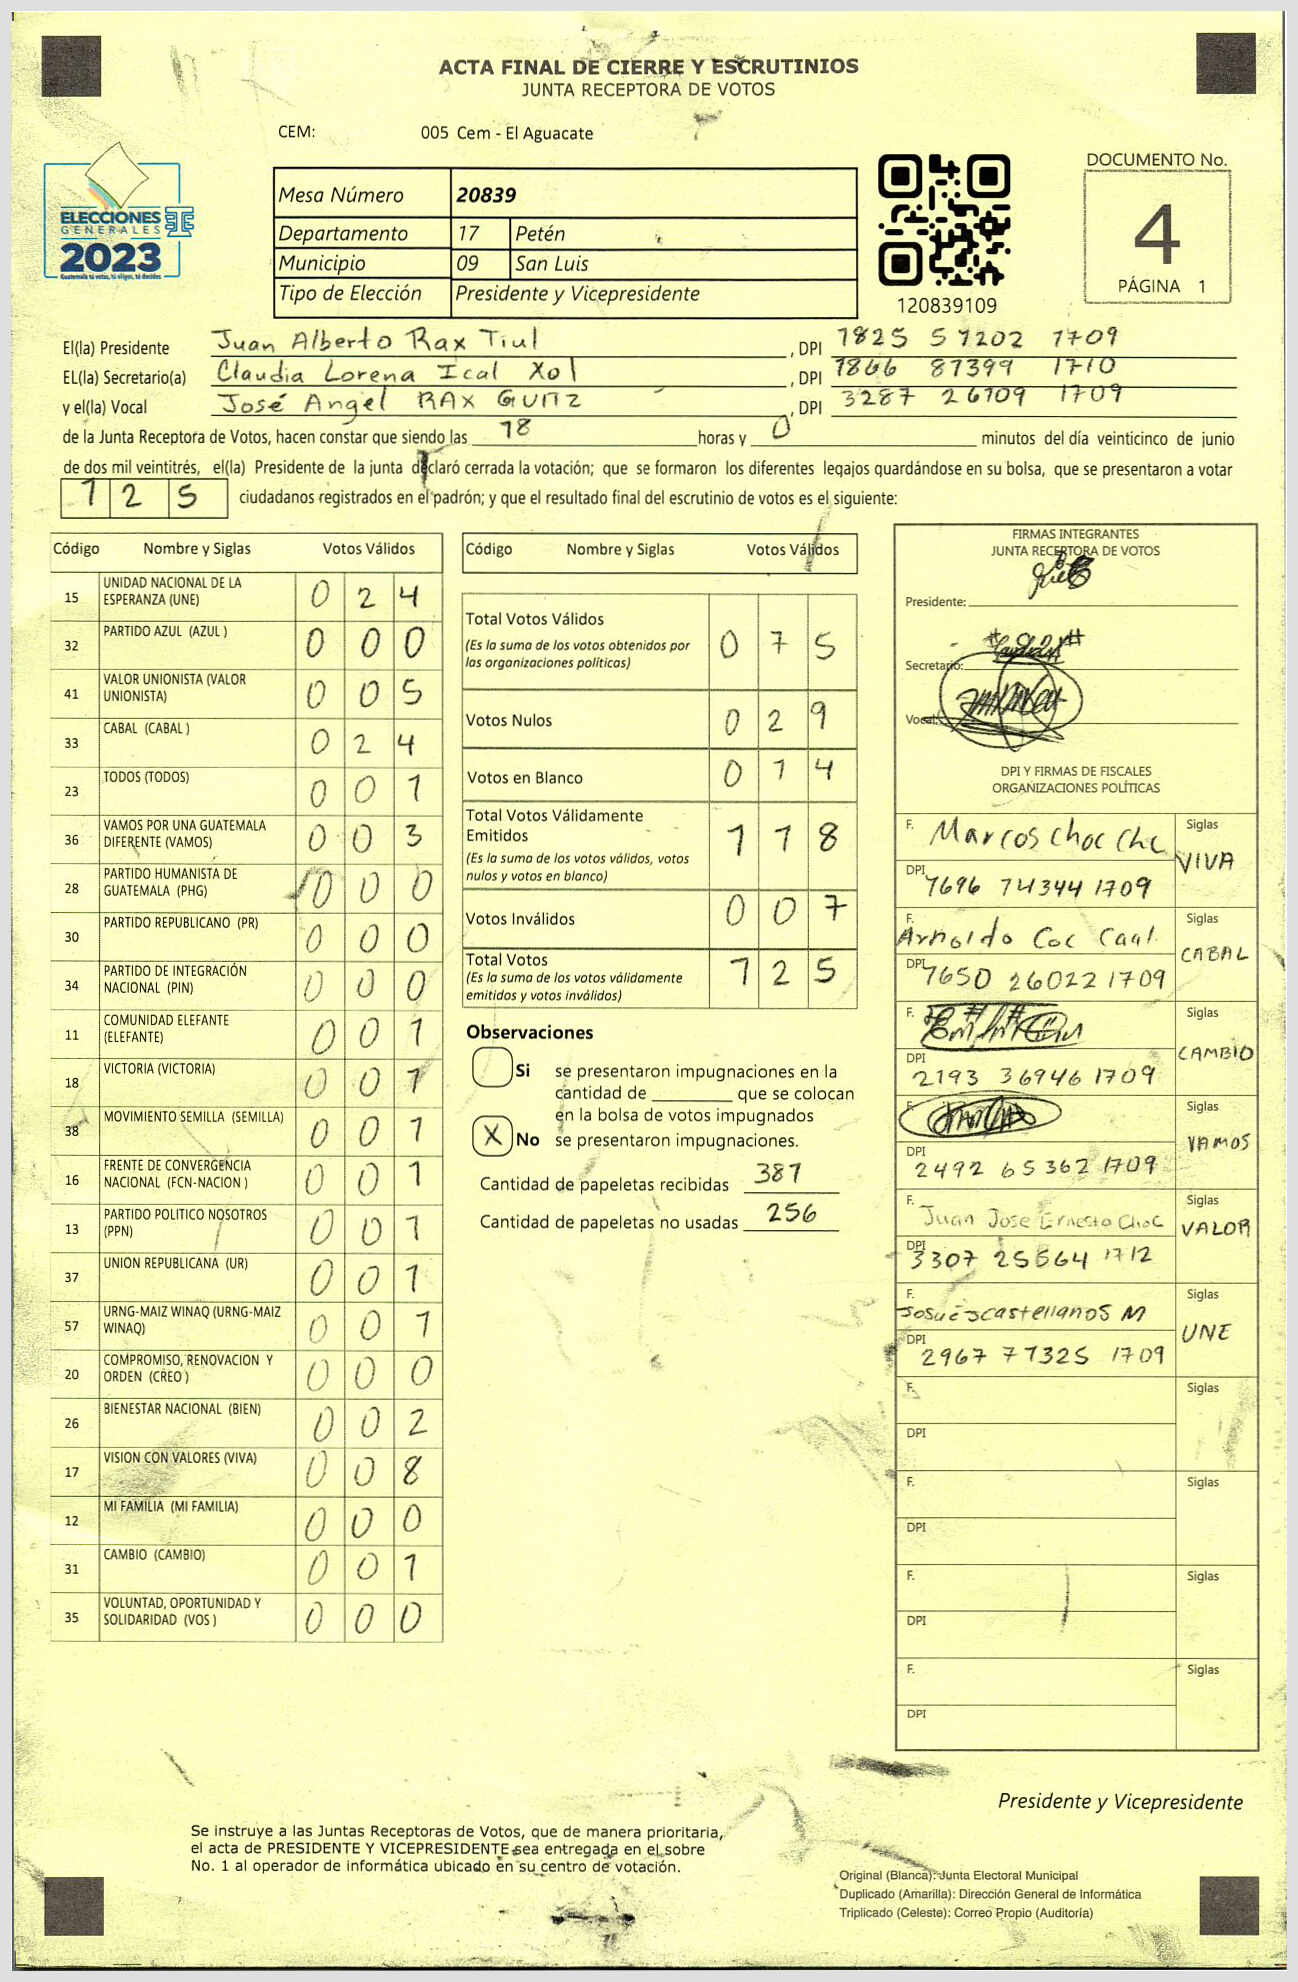 ACTA FINAL DE CIERRE Y ESCRUTINIOS
JUNTA RECEPTORA DE VOTOS
CEM: 005 Cem - El Aguacate
ELECCIONES
GENERALES
2023
Guatemala tú votas, tú eliges, tú decides
Mesa Número 20839
Departamento 17 Petén
Municipio 09 San Luis
Tipo de Elección Presidente y Vicepresidente
120839109
DOCUMENTO No.
4
PÁGINA 1
El(la) Presidente Juan Alberto Rax Tiul , DPI 1825 57202 1709
EL(la) Secretario(a) Claudia Lorena Ical Xol , DPI 1866 87399 1710
y el(la) Vocal José Angel RAX , DPI 3287 26109 1709
de la Junta Receptora de Votos, hacen constar que siendo las 18 horas y 0 minutos del día veinticinco de junio
de dos mil veintitrés, el(la) Presidente de la junta declaró cerrada la votación; que se formaron los diferentes legajos guardándose en su bolsa, que se presentaron a votar
125 ciudadanos registrados en el padrón; y que el resultado final del escrutinio de votos es el siguiente:
Código Nombre y Siglas Votos Válidos
15 UNIDAD NACIONAL DE LA ESPERANZA (UNE) 0 2 4
32 PARTIDO AZUL (AZUL ) 0 0 0
41 VALOR UNIONISTA (VALOR UNIONISTA) 0 0 5
33 CABAL (CABAL ) 0 2 4
23 TODOS (TODOS) 0 0 1
36 VAMOS POR UNA GUATEMALA DIFERENTE (VAMOS) 0 0 3
28 PARTIDO HUMANISTA DE GUATEMALA (PHG) 0 0 0
30 PARTIDO REPUBLICANO (PR) 0 0 0
34 PARTIDO DE INTEGRACIÓN NACIONAL (PIN) 0 0 0
11 COMUNIDAD ELEFANTE (ELEFANTE) 0 0 1
18 VICTORIA (VICTORIA) 0 0 1
38 MOVIMIENTO SEMILLA (SEMILLA) 0 0 1
16 FRENTE DE CONVERGENCIA NACIONAL (FCN-NACION ) 0 0 1
13 PARTIDO POLITICO NOSOTROS (PPN) 0 0 1
37 UNION REPUBLICANA (UR) 0 0 1
57 URNG-MAIZ WINAQ (URNG-MAIZ WINAQ) 0 0 1
20 COMPROMISO, RENOVACION Y ORDEN (CREO ) 0 0 0
26 BIENESTAR NACIONAL (BIEN) 0 0 2
17 VISION CON VALORES (VIVA) 0 0 8
12 MI FAMILIA (MI FAMILIA) 0 0 0
31 CAMBIO (CAMBIO) 0 0 1
35 VOLUNTAD, OPORTUNIDAD Y SOLIDARIDAD (VOS ) 0 0 0
Código Nombre y Siglas Votos Válidos
Total Votos Válidos 0 7 5
(Es la suma de los votos obtenidos por
las organizaciones políticas)
Votos Nulos 0 2 9
Votos en Blanco 0 1 4
Total Votos Válidamente
Emitidos 1 1 8
(Es la suma de los votos válidos, votos
nulos y votos en blanco)
Votos Inválidos 0 0 7
Total Votos 1 2 5
(Es la suma de los votos válidamente
emitidos y votos inválidos)
Observaciones
Si se presentaron impugnaciones en la
cantidad de ________ que se colocan
en la bolsa de votos impugnados
X No se presentaron impugnaciones.
Cantidad de papeletas recibidas 387
Cantidad de papeletas no usadas 256
FIRMAS INTEGRANTES
JUNTA RECEPTORA DE VOTOS
Presidente:
Secretario:
Vocal:
DPI Y FIRMAS DE FISCALES
ORGANIZACIONES POLÍTICAS
F. Marcos Choc Chc Siglas VIVA
DPI 1696 74344 1709
F. Arnoldo Coc Caal. Siglas CABAL
DPI 1650 26022 1709
F. Siglas CAMBIO
DPI 2193 36946 1709
F. Siglas VAMOS
DPI 2492 65362 1709
F. Juan Jose Ernesto Choc Siglas VALOR
DPI 3307 25664 1712
F. Josué Jcastellanos M Siglas UNE
DPI 2967 77325 1709
F. Siglas
DPI
F. Siglas
DPI
F. Siglas
DPI
F. Siglas
DPI
Presidente y Vicepresidente
Se instruye a las Juntas Receptoras de Votos, que de manera prioritaria,
el acta de PRESIDENTE Y VICEPRESIDENTE sea entregada en el sobre
No. 1 al operador de informática ubicado en su centro de votación.
Original (Blanca): Junta Electoral Municipal
Duplicado (Amarilla): Dirección General de Informática
Triplicado (Celeste): Correo Propio (Auditoría)